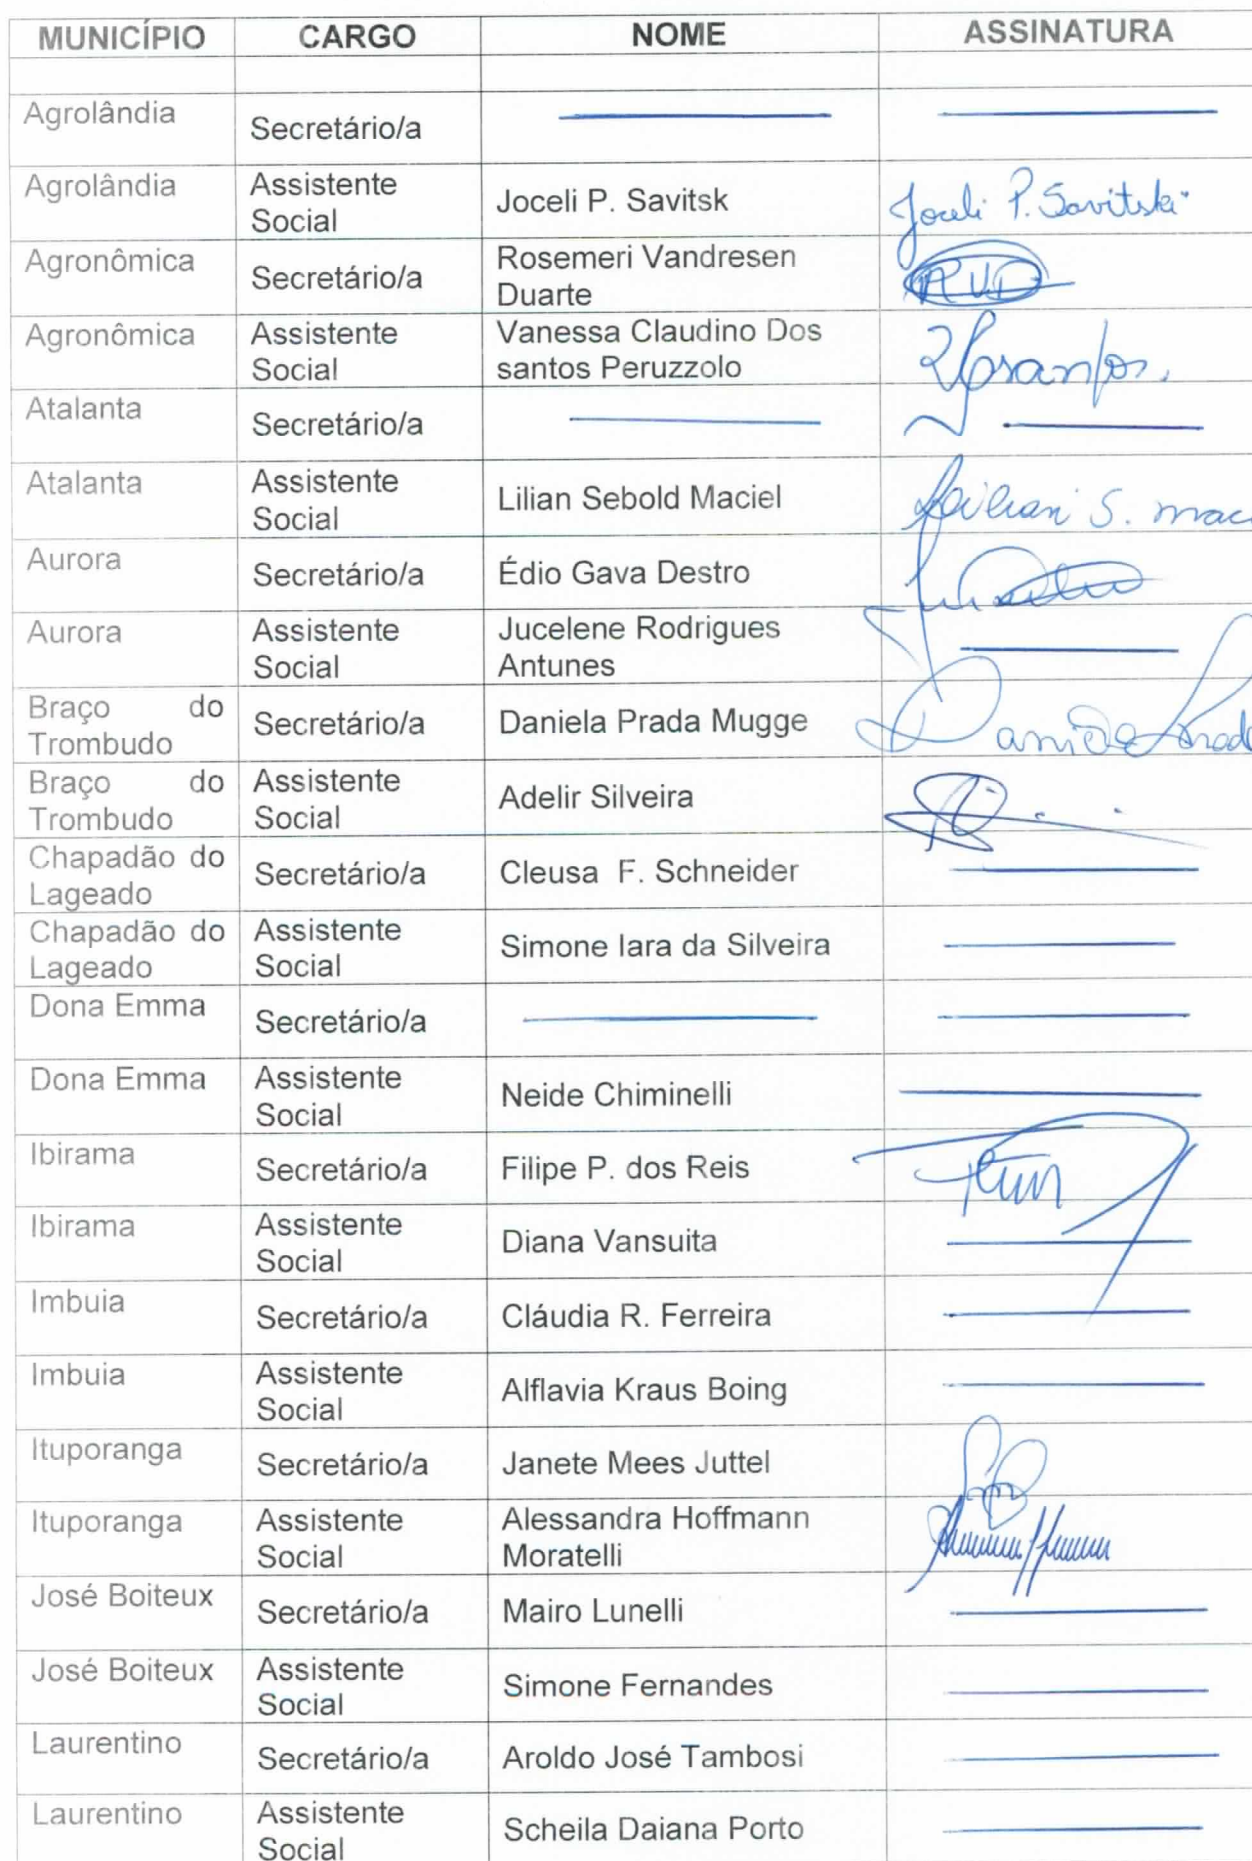 MUNICÍPIO CARGO NOME ASSINATURA
Agrolândia Secretário/a
Agrolândia Assistente Social Joceli P. Savitsk Joceli P. Savitski
Agronômica Secretário/a Rosemeri Vandresen Duarte RVD
Agronômica Assistente Social Vanessa Claudino Dos santos Peruzzolo
Atalanta Secretário/a
Atalanta Assistente Social Lilian Sebold Maciel Lilian S. maci
Aurora Secretário/a Édio Gava Destro
Aurora Assistente Social Jucelene Rodrigues Antunes
Braço do Trombudo Secretário/a Daniela Prada Mugge Daniela Prada
Braço do Trombudo Assistente Social Adelir Silveira
Chapadão do Lageado Secretário/a Cleusa F. Schneider
Chapadão do Lageado Assistente Social Simone Iara da Silveira
Dona Emma Secretário/a
Dona Emma Assistente Social Neide Chiminelli
Ibirama Secretário/a Filipe P. dos Reis
Ibirama Assistente Social Diana Vansuita
Imbuia Secretário/a Cláudia R. Ferreira
Imbuia Assistente Social Alflavia Kraus Boing
Ituporanga Secretário/a Janete Mees Juttel
Ituporanga Assistente Social Alessandra Hoffmann Moratelli
José Boiteux Secretário/a Mairo Lunelli
José Boiteux Assistente Social Simone Fernandes
Laurentino Secretário/a Aroldo José Tambosi
Laurentino Assistente Social Scheila Daiana Porto